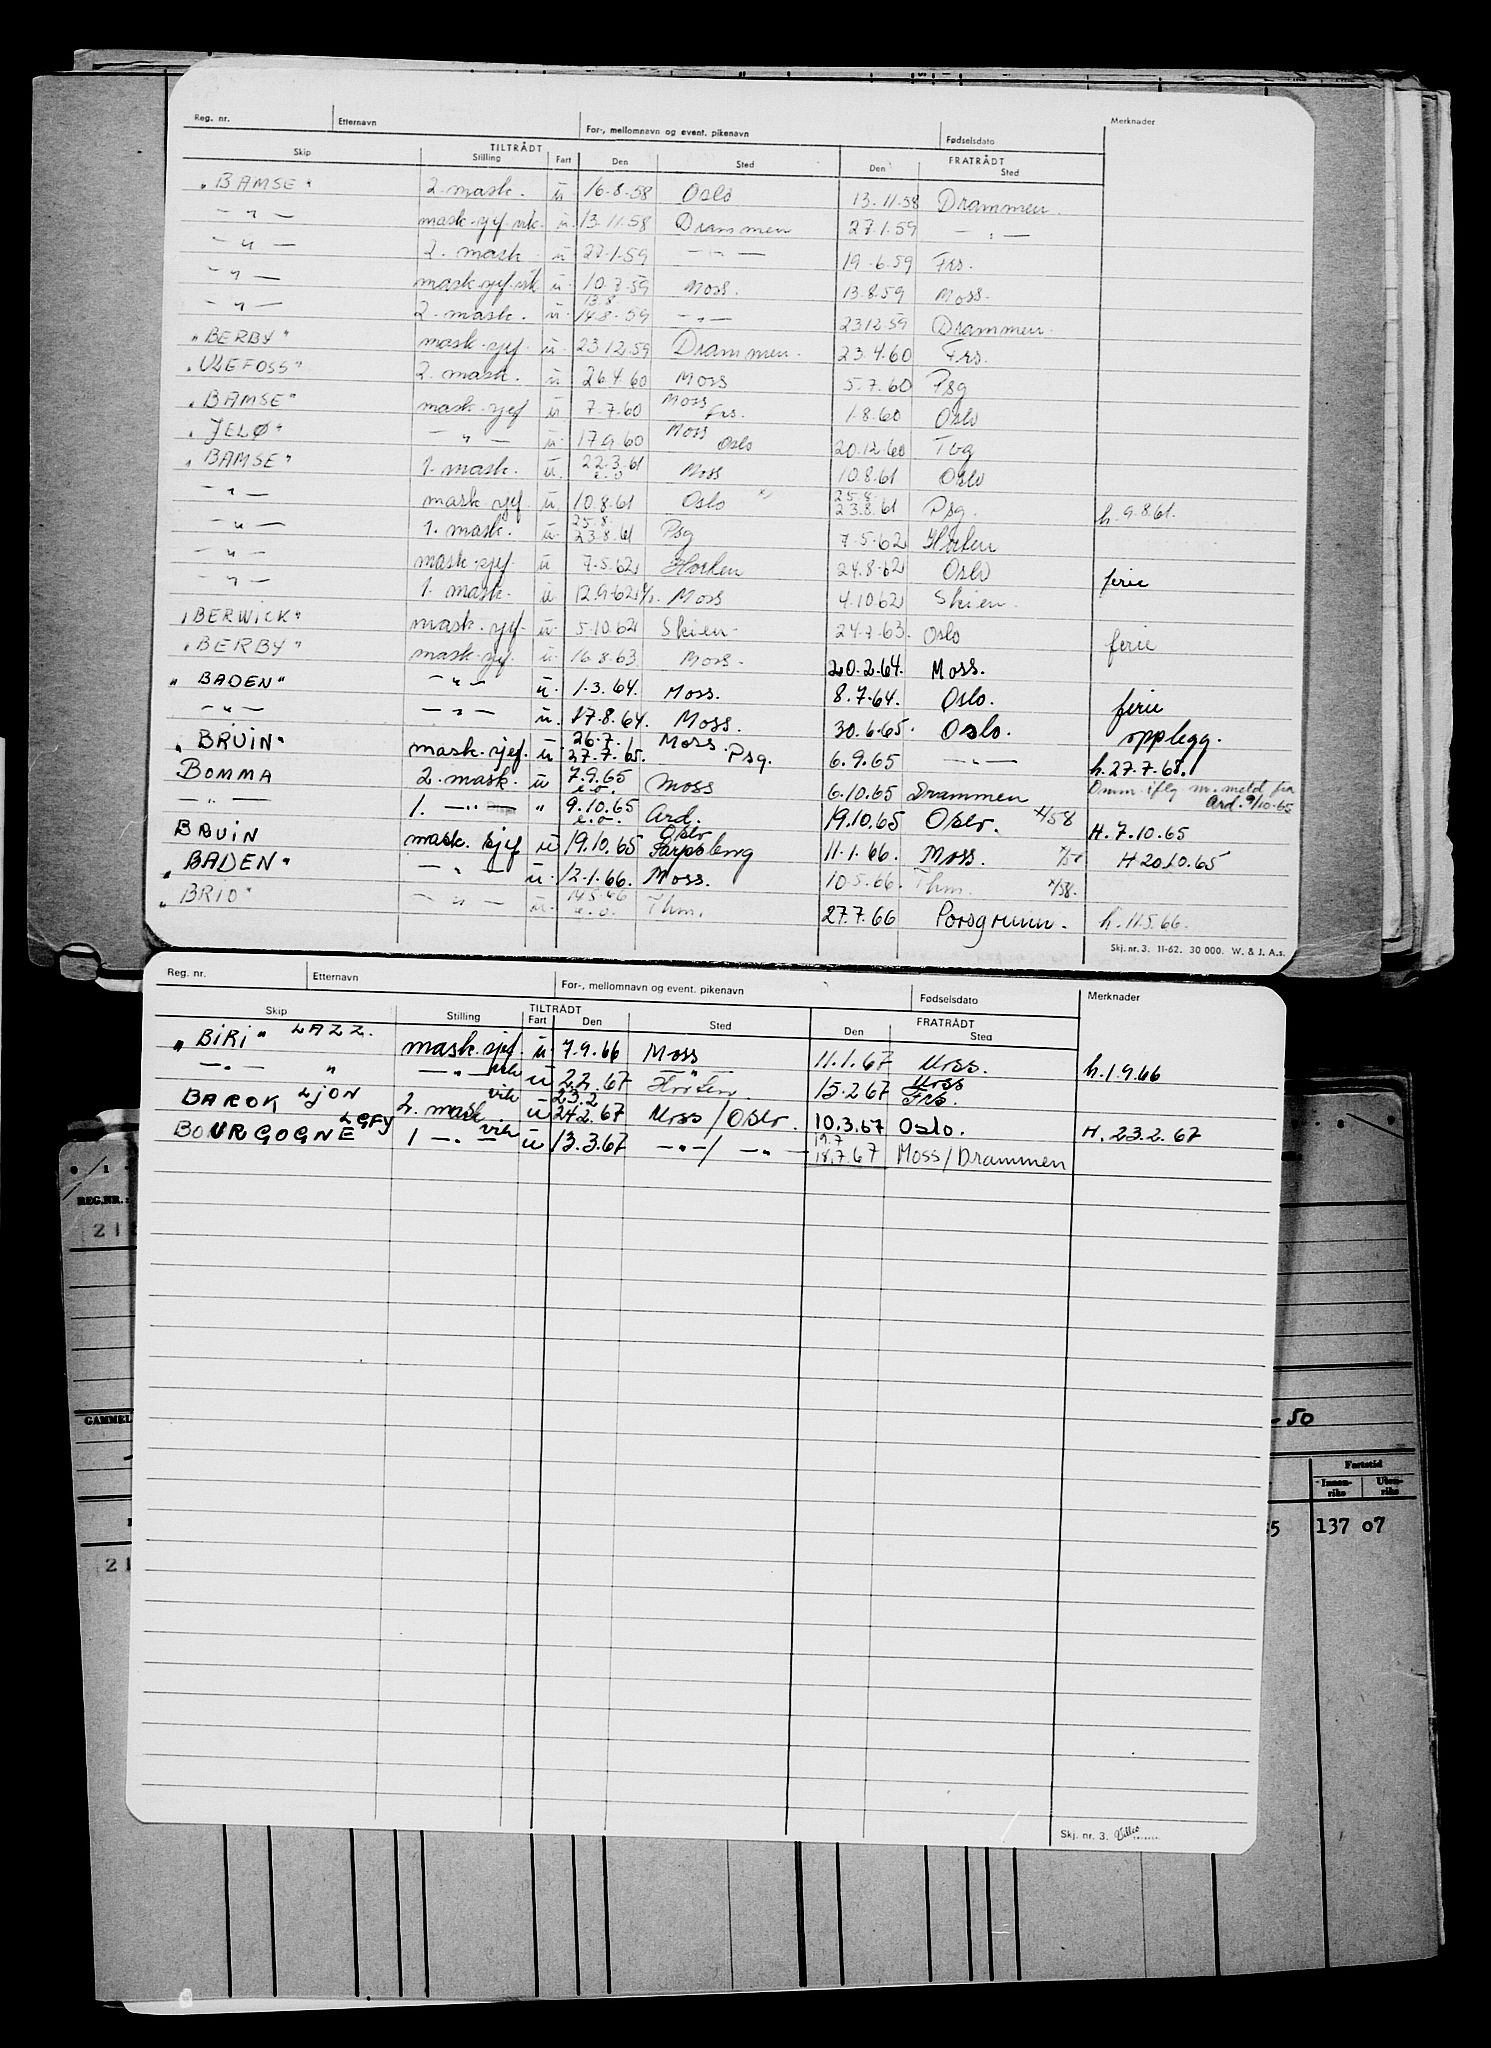 Reg. nr. Etternavn For-, mellomnavn og event. pikenavn Fødselsdato Merknader
TILTRÅDT FRATRÅDT
Skip Stilling Fart Den Sted Den Sted
"BAMSE" 2. mask. u 16-8-58 Oslo 13.11.58 Drammen.
— " — mask.sjef vik. u. 13.11.58 Drammen 27.1.59 — " —
— " — 2. mask u 27.1.59 — " — 19.6.59 Frs.
— " — mask.sjef.vik u. 10.7.59 Moss. 13.8.59 Moss.
— " — 2. mask. u. 13.8 14.8-59 — " — 23.12.59 Drammen.
"BERBY" mask.sjef. u. 23.12.59 Drammen. 23.4.60 Frs.
"ULEFOSS" 2. mask. u. 26.4.60 Moss 5.7.60 Psg
"BAMSE" mask.sjef u 7.7.60 Moss Frs. 1.8.60 Oslo
"JELØ" — " — u. 17.9.60 Moss Oslo 20.12.60 Tbg
"BAMSE" 1. mask. u. 22.3.61 e.o Moss 10.8.61 Oslo
— " — mask.sjef u 10.8.61 Oslo x) 25.8. 23.8.61 Psg. h. 9.8.61.
— " — 1. mask. u. 25.8. 23.8.61 Psg 7.5.62 Horten
— " — mask.sjef. u 7.5.62 Horten 24.8.62 Oslo ferie
— " — 1. mask. u 12.9.62 Moss 4.10.62 Skien.
"BERWICK" mask.sjef. u. 5.10.62 Skien. 24.7.63. Oslo ferie
"BERBY" mask.sjef. u. 16.8.63 Moss. 20.2.64. Moss.
"BADEN" — " — u. 1.3.64. Moss. 8.7.64. Oslo. ferie
— " — — " — u. 17.8.64. Moss. 30.6.65. Oslo. opplegg.
"BRUIN" mask.sjef. u. 26.7. 27.7.65. Moss. Psg. 6.9.65 — " — h. 27.7.65.
BOMMA 2. mask. u 7.9.65 e.o. Moss 6.10.65 Drammen Omm. iflg m. meld fra Ard. 9/10-65
— " — 1. — " — " 9.10.65 e.o. Ard. 19.10.65 Oslo. x/58 H. 7.10.65
BRUIN mask. sjef u 19.10.65 Oslo Sarpsborg 11.1.66. Moss. H 20.10.65
"BADEN" — " — u. 12.1.66. Moss. 10.5.66. Thm. x/58.
"BRIO" — " — u. 14.5.66 e.o. Thm. 27.7.66 Porsgrunn. h. 11.5.66.
Skj. nr. 3. 11-62. 30 000. W. & J. A.s.
Reg. nr. Etternavn For-, mellomnavn og event. pikenavn Fødselsdato Merknader
TILTRÅDT FRATRÅDT
Skip Stilling Fart Den Sted Den Sted
"BIRI" LAZZ. mask.sjef. u. 7.9.66 Moss 11.1.67 Moss. h. 1.9.66
— " — " — " — vik u 2.2.67 Horten. 15.2.67 Moss Frs.
BAROK LJON 2. mask vik u 23.2 24.2.67 Moss / Oslo. 10.3.67 Oslo. H. 23.2.67
BOURGOGNE LGFY 1 — " — vik u 13.3.67 — " — / — " — 19.7 18.7.67 Moss / Drammen
REG.NR.:
21
GAMMEL
-50
Fartstid
Innen-riks Uten-riks
5 137 07
21
Skj. nr. 3.